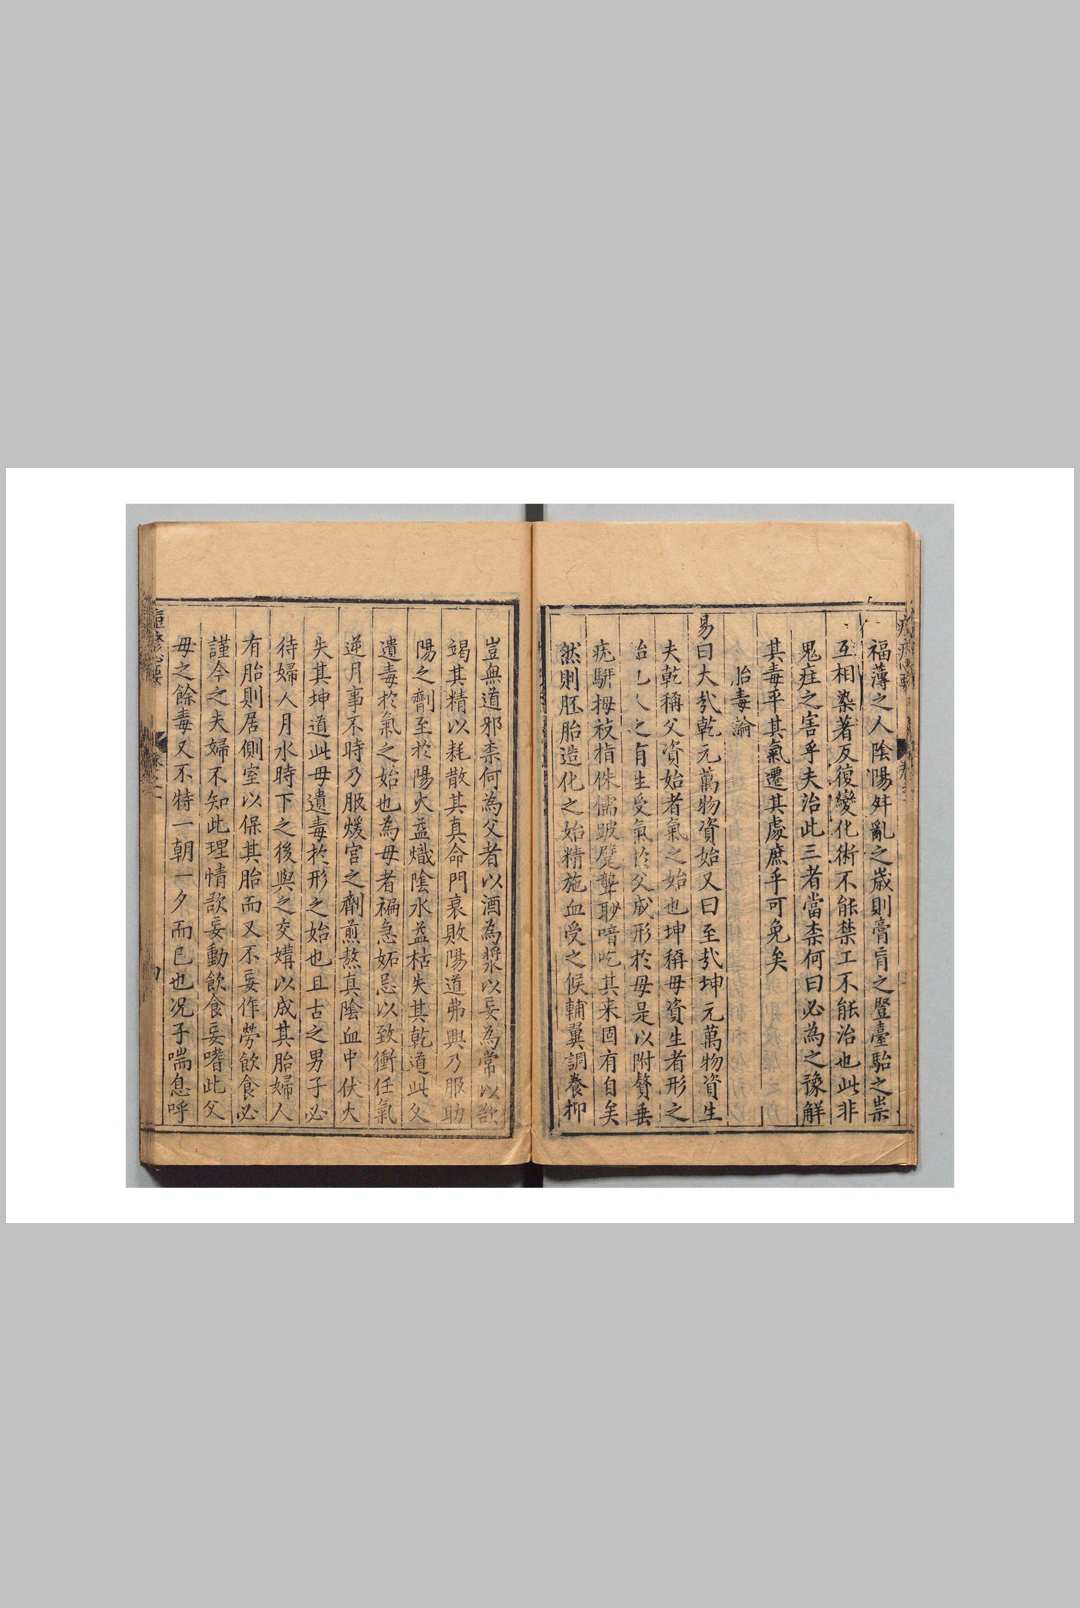 福薄之人陰陽舛亂之歲則膏肓之豎臺駘之祟
互相染著反復變化術不能禁工不能治也此非
鬼疰之害乎夫治此三者當柰何曰必為之豫解
其毒平其氣遷其處庶乎可免矣
胎毒論
易曰大㢤乾元萬物資始又曰至㢤坤元萬物資生
夫乾稱父資始者氣之始也坤稱母資生者形之
始也人之有生受氣於父成形於母是以附贅垂
疣駢拇枝指侏儒跛躄聾聤喑吃其来固有自矣
然則胚胎造化之始精施血受之候輔翼調養抑
豈無道邪柰何為父者以酒為漿以妄為常以欲
竭其精以耗散其真命門衰敗陽道弗興乃服助
陽之劑至於陽火益熾陰水益枯失其乾道此父
遺毒於氣之始也為母者褊急妬忌以致衝任氣
逆月事不時乃服煖宫之劑煎熬真陰血中伏火
失其坤道此母遺毒於形之始也且古之男子必
待婦人月水時下之後與之交媾以成其胎婦人
有胎則居側室以保其胎而又不妄作勞飲食必
謹今之夫婦不知此理情欲妄動飲食妄嗜此父
母之餘毒又不特一朝一夕而已也况子喘息呼